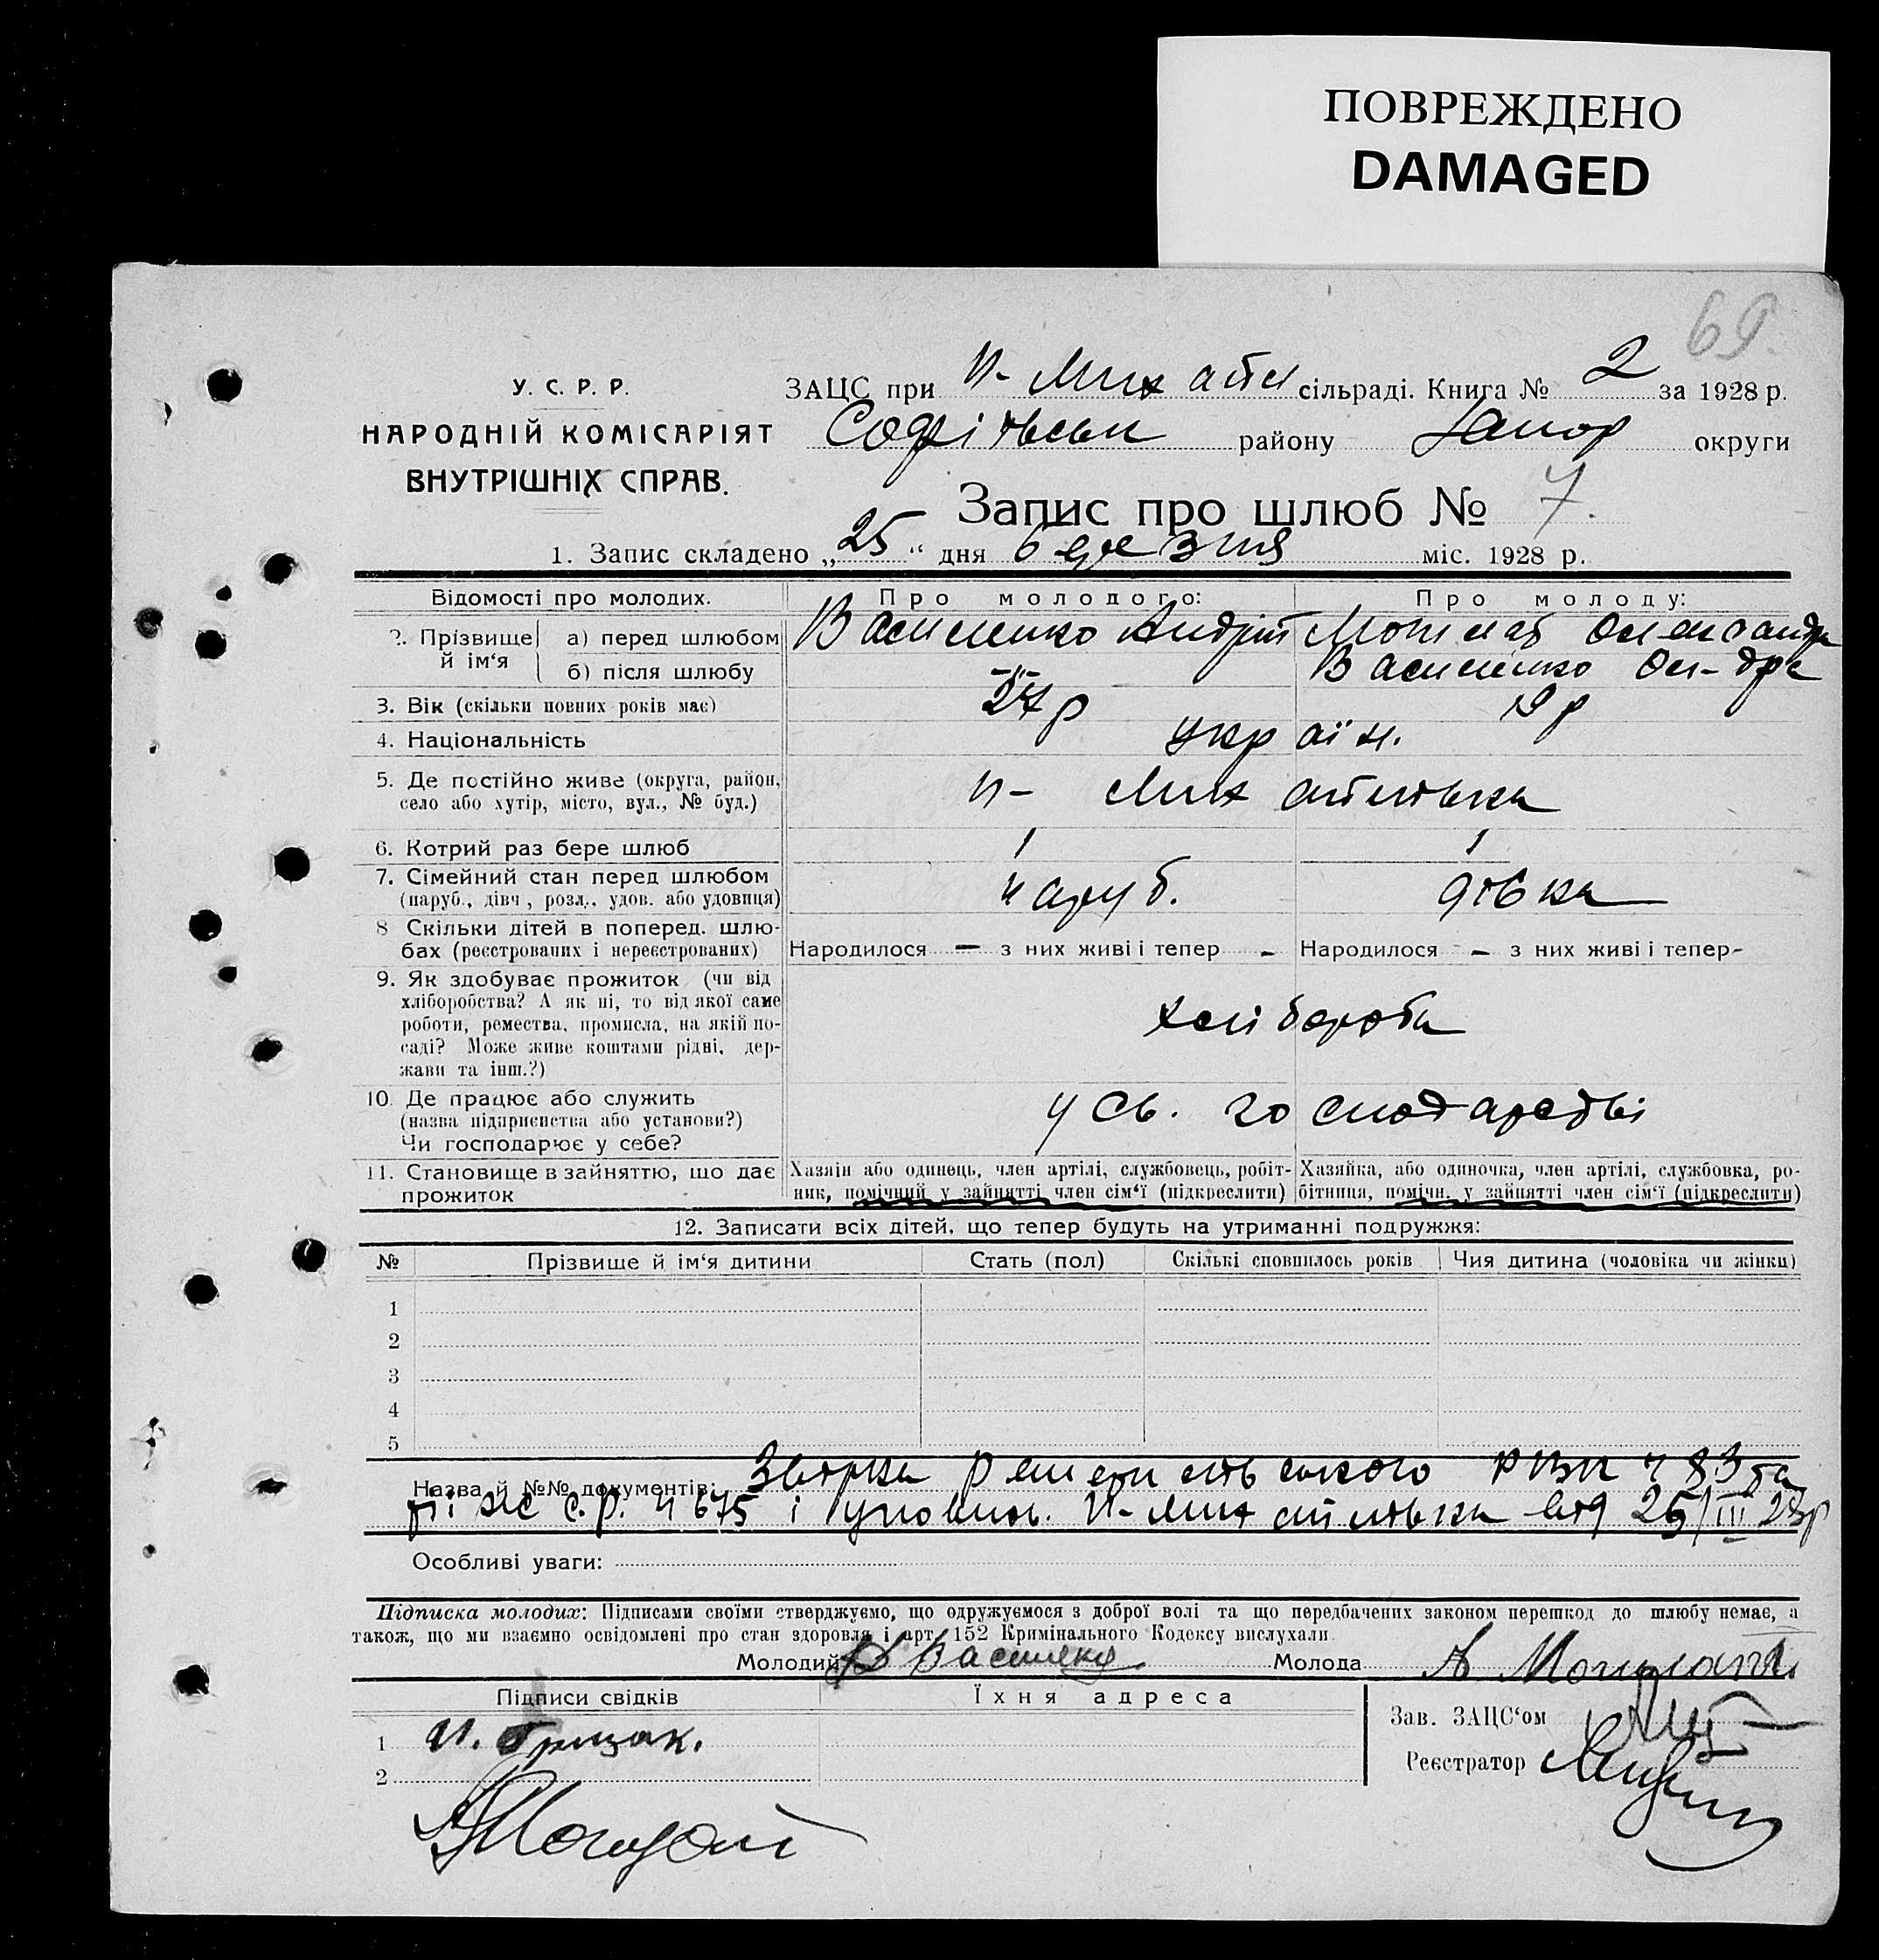 ПОВРЕЖДЕНО
DAMAGED
69.
У. С. Р. Р.
НАРОДНІЙ КОМІСАРІЯТ
ВНУТРІШНІХ СПРАВ.
ЗАЦС при Н- Михайл сільраді. Книга № 2 за 1928 р.
Софіївськ району Запор округи
Запис про шлюб № 7.
1. Запис складено „25“ дня березня міс. 1928 р.
Відомості про молодих. Про молодого: Про молоду:
2. Прізвище й ім‘я а) перед шлюбом Василенко Андрій Олександра
б) після шлюбу -"- Василенко Ол-дра
3. Вік (скільки повних років має) 27р 19р
4. Національність україн.
5. Де постійно живе (округа, район, село або хутір, місто, вул., № буд.) Н- Михайлівка
6. Котрий раз бере шлюб 1 1
7. Сімейний стан перед шлюбом (паруб., дівч., розл., удов. або удовиця) паруб. дівка
8 Скільки дітей в поперед. шлюбах (реєстрованих і нереєстрованих) Народилося — з них живі і тепер - Народилося - з них живі і тепер-
9. Як здобуває прожиток (чи від хліборобства? А як ні, то від якої саме роботи, ремества, промисла, на якій посаді? Може живе коштами рідні, держави та інш.?) хлібороби
10. Де працює або служить (назва підприємства або установи?) Чи господарює у себе? у св. господарстві
11. Становище в зайняттю, що дає прожиток Хазяін або одинець, член артілі, службовець, робітник, помічний у зайнятті член сім‘ї (підкреслити) Хазяйка, або одиночка, член артілі, службовка, робітниця, помічн. у зайнятті член сім‘ї (підкреслити)
12. Записати всіх дітей, що тепер будуть на утриманні подружжя:
№ Прізвище й ім‘я дитини Стать (пол) Скількі сповнилось років Чия дитина (чоловіка чи жінки)
1
2
3
4
5
Назва й №№ документів: РВК ч 83 та
с.р. ч 675 і Н-Михайлівка від 25/III 28р
Особливі уваги:
Підписка молодих: Підписами своїми стверджуємо, що одружуємося з доброї волі та що передбачених законом перешкод до шлюбу немає, а
також, що ми взаємно освідомлені про стан здоровля і арт. 152 Кримінального Кодексу вислухали.
Молодий Молода А
Підписи свідків Їхня адреса
Зав. ЗАЦС‘ом
1
Реєстратор
2